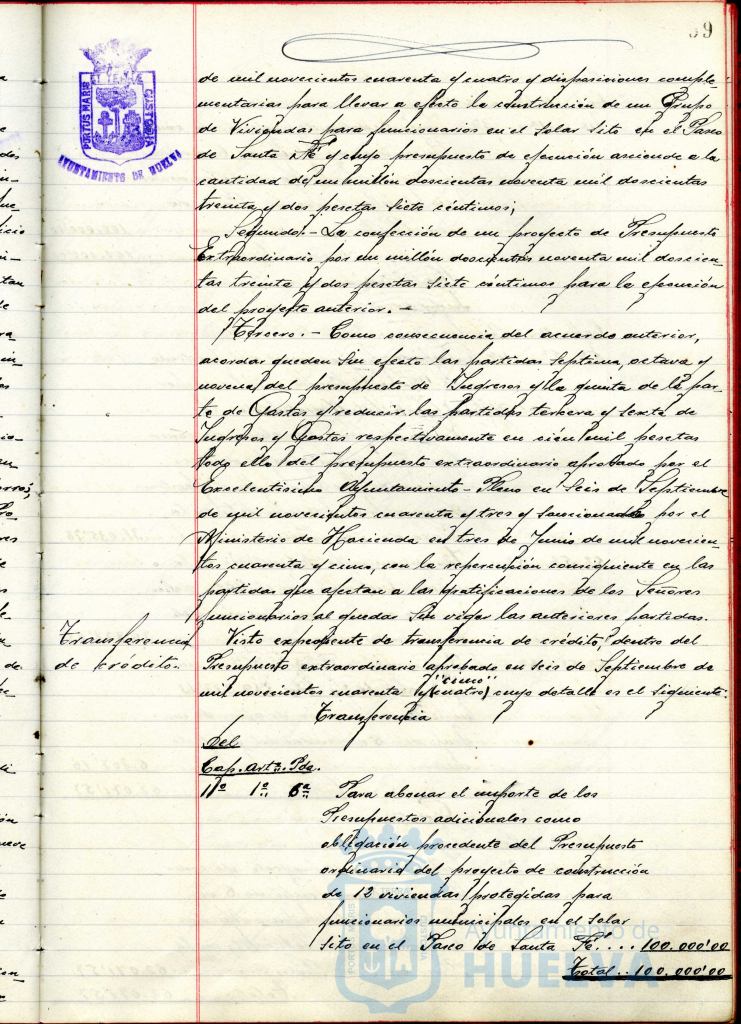 59
PORTUS MARIS
ET TERRE
CUSTODIA
AYUNTAMIENTO DE HUELVA
de mil novecientos cuarenta y cuatro y disposiciones comple-
mentarias para llevar a efecto la construcción de un Grupo
de Viviendas para funcionarios en el solar sito en el Paseo
de Santa Fé y cuyo presupuesto de ejecución asciende a la
cantidad de un millón doscientas noventa mil doscientas
treinta y dos pesetas siete céntimos;
Segundo.- La confección de un proyecto de Presupuesto
Extraordinario por un millón doscientas noventa mil doscien-
tas treinta y dos pesetas siete céntimos para la ejecución
del proyecto anterior.-
Tercero.- Como consecuencia del acuerdo anterior,
acordar queden sin efecto las partidas septima, octava y
novena del presupuesto de Ingresos y la quinta de la par-
te de Gastos y reducir las partidas tercera y sexta de
Ingresos y Gastos respectivamente en cien mil pesetas
todo ello del presupuesto extraordinario aprobado por el
Excelentísimo Ayuntamiento-Pleno en seis de Septiembre
de mil novecientos cuarenta y tres y sancionado por el
Ministerio de Hacienda en tres de Junio de mil novecien-
tos cuarenta y cinco, con la repercusión consiguiente en las
partidas que afectan a las gratificaciones de los Señores
funcionarios al quedar sin vigor las anteriores partidas.
Transferencia
de crédito.
Visto expediente de transferencia de crédito, dentro del
Presupuesto extraordinario aprobado en seis de Septiembre de
"cinco"
mil novecientos cuarenta y (cuatro) cuyo detalle es el siguiente:
Transferencia
Del
Cap. Artº. Pda.
11º 1º 6ª Para abonar el importe de los
Presupuestos adicionales como
obligación procedente del Presupuesto
ordinario del proyecto de construcción
de 12 viviendas protegidas para
funcionarios municipales en el solar
sito en el Paseo de Santa Fé.... 100.000'00
Total.. 100.000'00
Ayuntamiento de
HUELVA